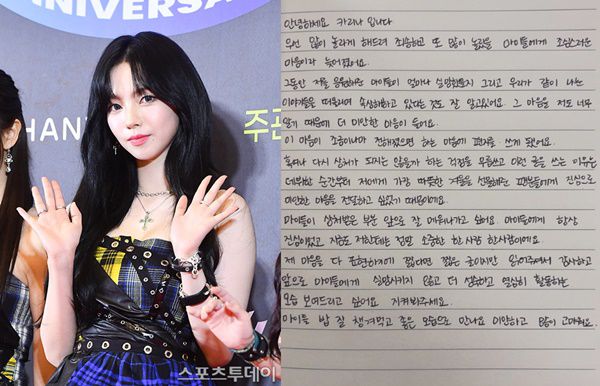 UNIVERSAL
HAN
주관
스포츠투데이
안녕하세요 카리나 입니다
우선 많이 놀라게 해드려 죄송하고 또 많이 놀랐을 마이들에게 조심스러운
마음이라 늦어졌어요.
그동안 저를 응원해준 마이들이 얼마나 실망했을지 그리고 우리가 같이 나눈
이야기들을 떠올리며 속상해하고 있다는 것도 잘 알고있어요. 그 마음을 저도 너무
알기 때문에 더 미안한 마음이 들어요.
이 마음이 조금이나마 전해졌으면 하는 마음에 편지를 쓰게 됐어요.
혹여나 다시 상처가 되지는 않을까 하는 걱정을 무릅쓰고 이런 글을 쓰는 이유는
데뷔한 순간부터 저에게 가장 따뜻한 겨울을 선물해준 팬분들에게 진심으로
미안한 마음을 전달하고 싶었기 때문이에요.
마이들이 상처받은 부분 앞으로 잘 메워나가고 싶어요. 마이들에게 항상
진심이었고 지금도 저한테는 정말 소중한 한 사람 한사람이에요.
제 마음을 다 표현하기에 짧다면 짧은 글이지만 읽어주셔서 감사하고
앞으로 마이들에게 실망시키지 않고 더 성숙하고 열심히 활동하는
모습 보여드리고 싶어요 지켜봐주세요.
마이들 밥 잘 챙겨먹고 좋은 모습으로 만나요 미안하고 많이 고마워요.